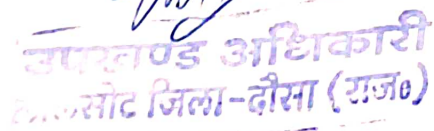 उपखण्ड अधिकारी
जिला-दौसा (राज०)